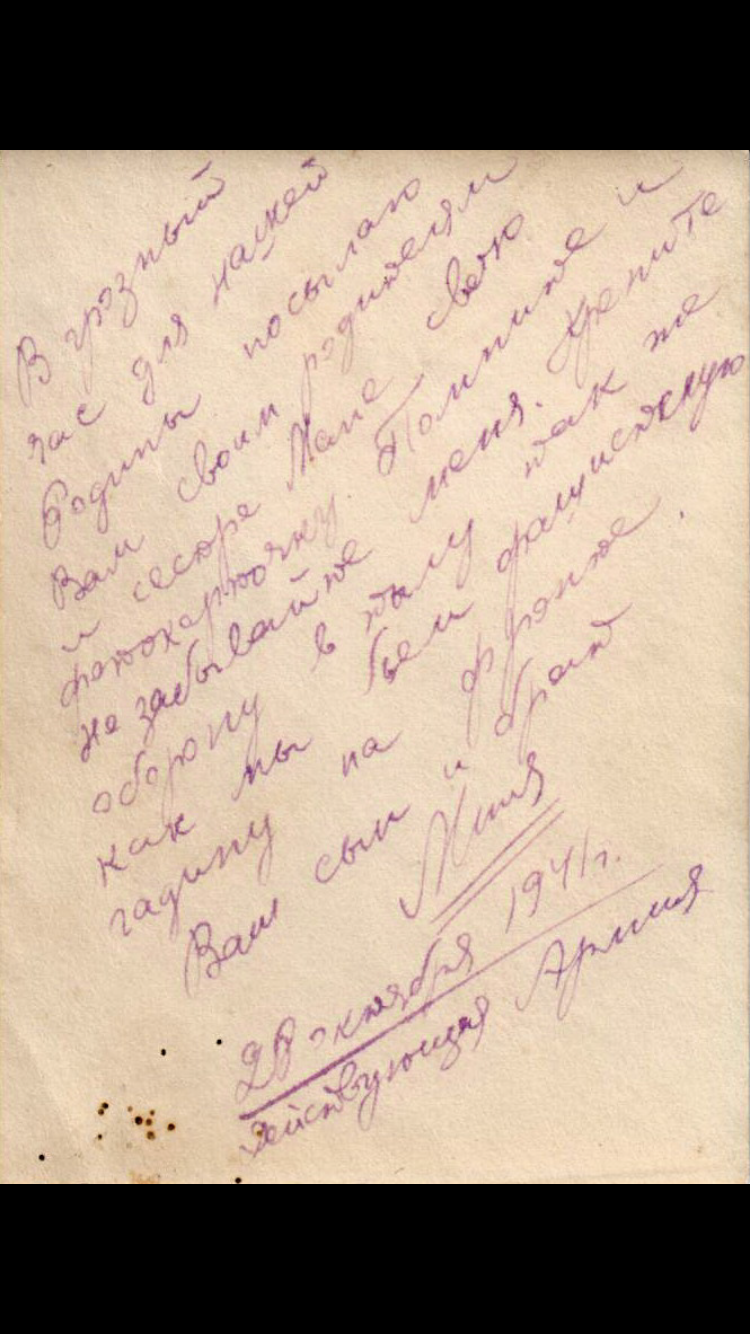 В грозный
час для нашей
Родины посылаю
Вам своим родителям
и сестре Мане свою
фотокарточку. Помните и
не забывайте меня. Крепите
оборону в тылу так же
как мы бьем фашистскую
гадину на фронте.
Ваш сын и брат
Миля
28 октября 1941 г.
Действующая Армия